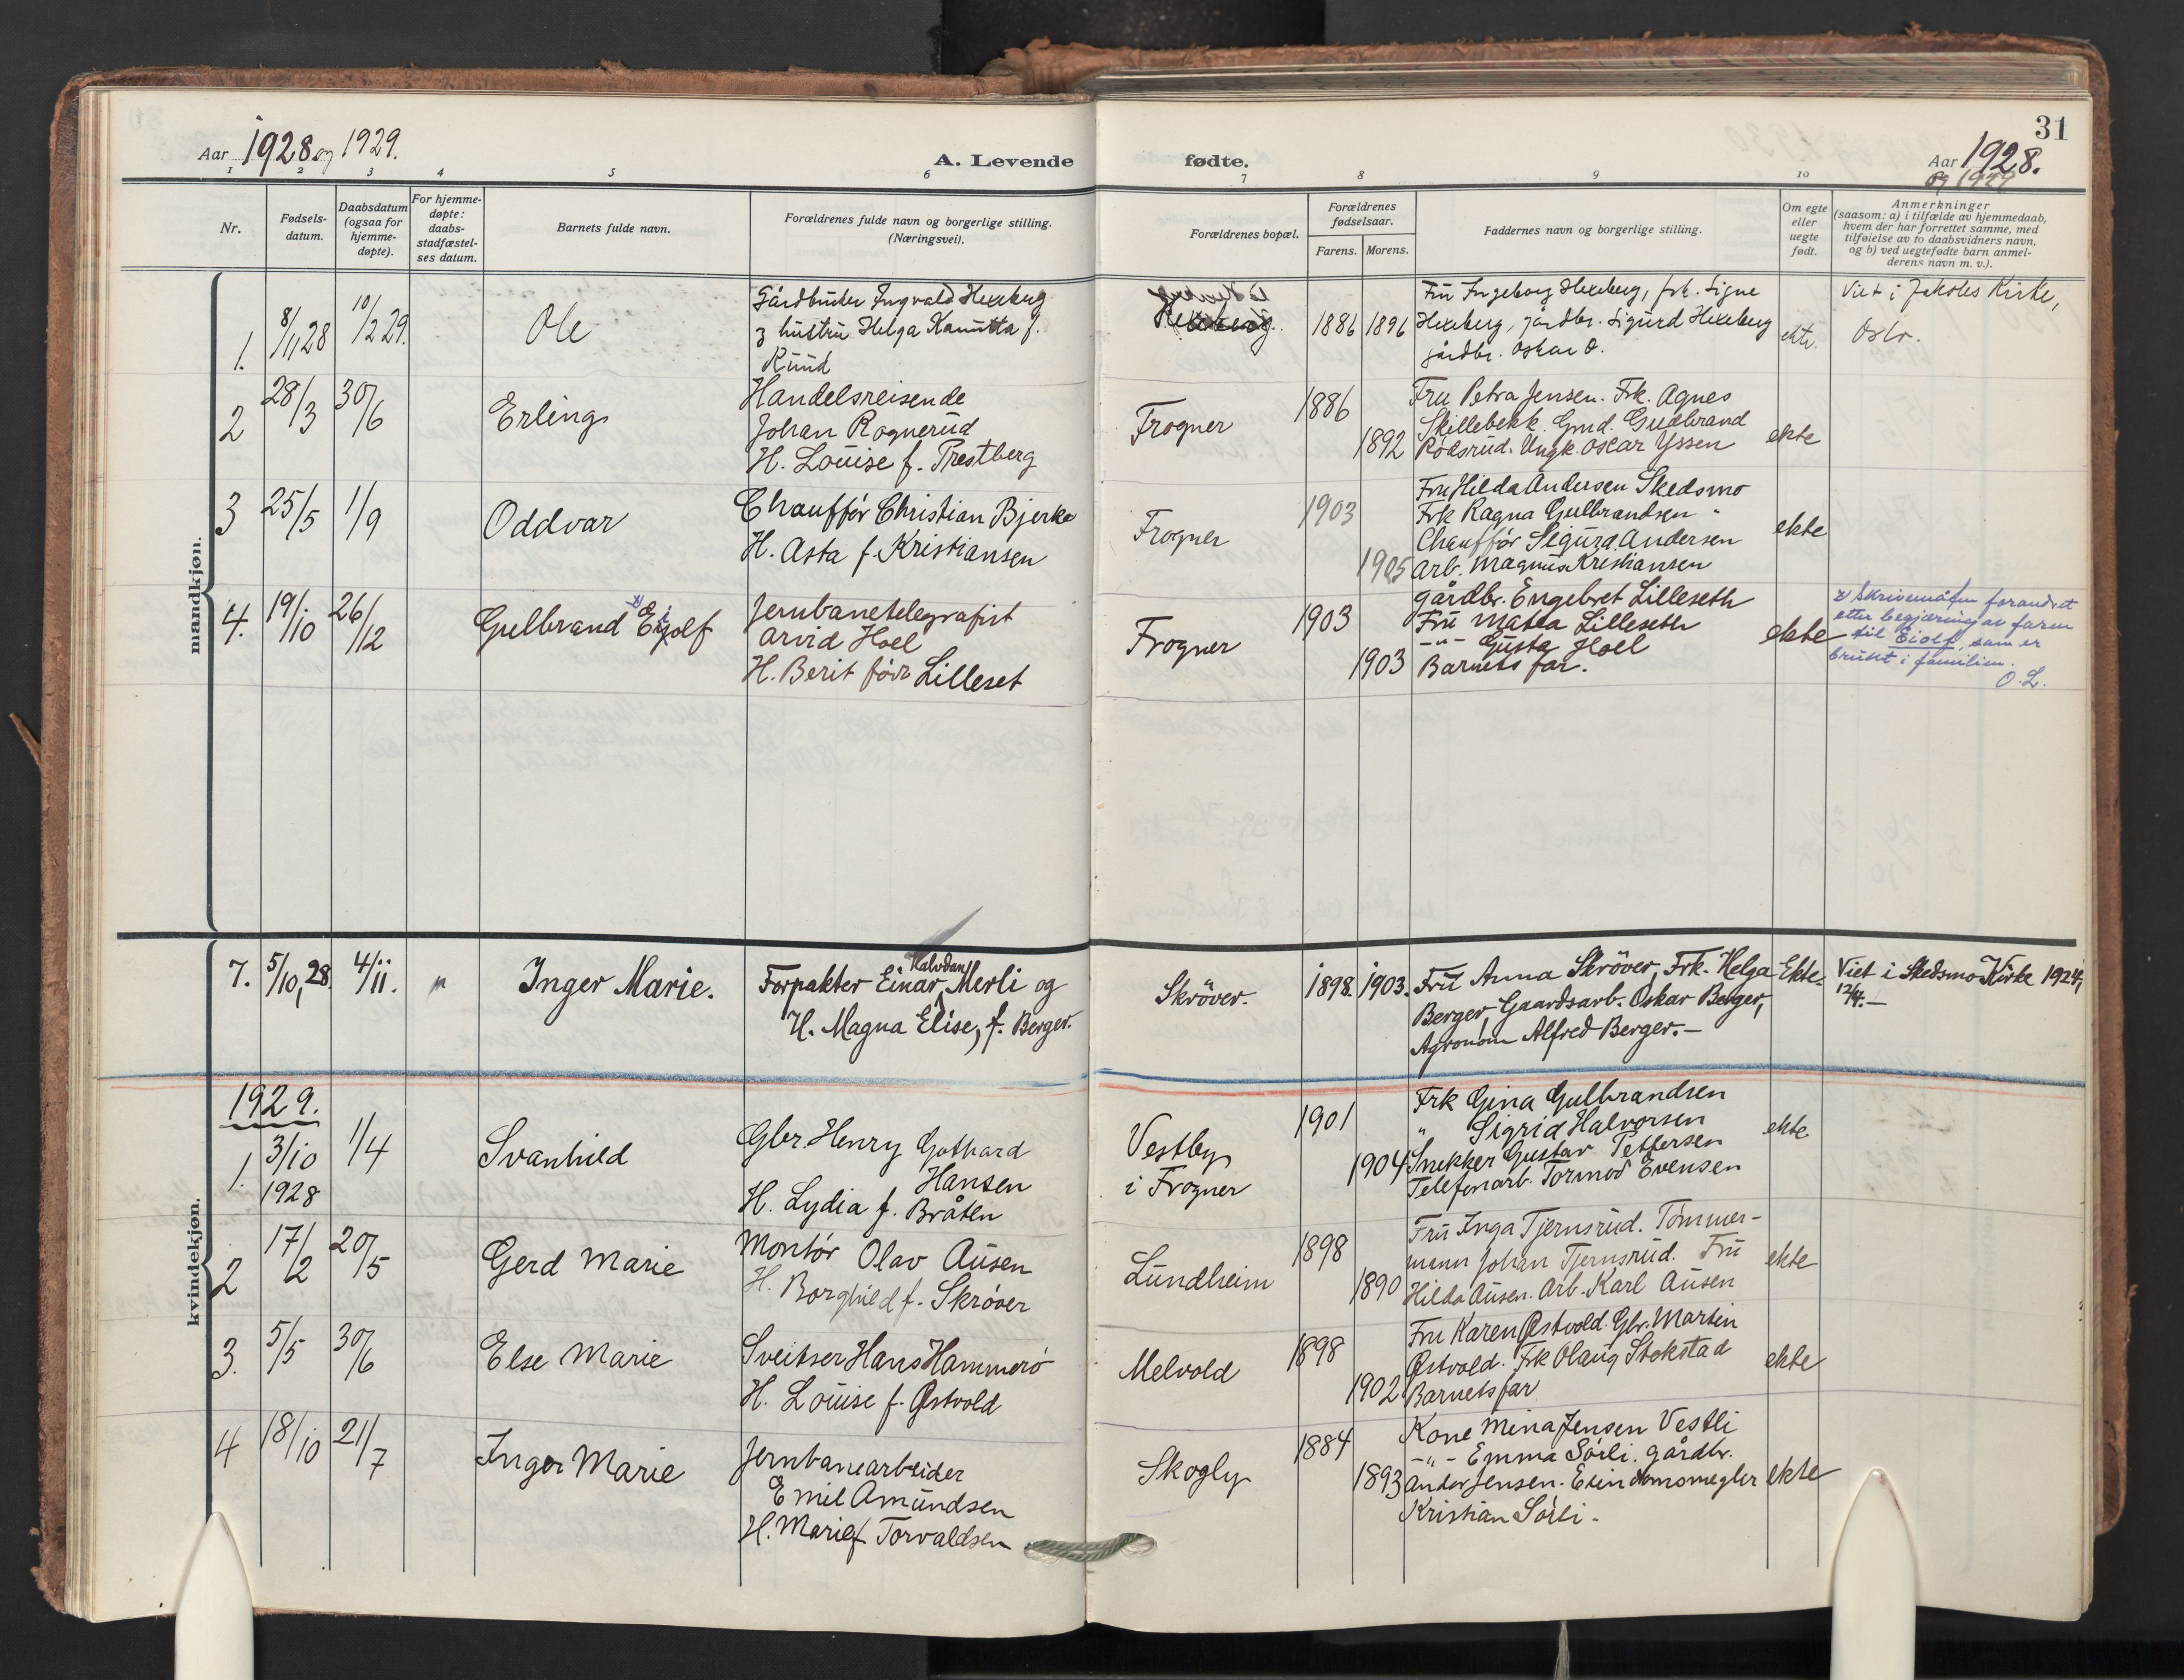 31
Aar 1928 og 1929.
A. Levende fødte.
Aar 1928.
og 1929
1 2 3 4 5 6 7 8 9 10
Nr.
Fødsels-
datum.
Daabsdatum
(ogsaa for
hjemme-
døpte).
For hjemme-
døpte:
daabs-
stadfæstel-
ses datum.
Barnets fulde navn.
Forældrenes fulde navn og borgerlige stilling.
(Næringsvei).
Forældrenes bopæl.
Forældrenes
fødselsaar.
Farens. Morens.
Faddernes navn og borgerlige stilling.
Om egte
eller
uegte
født.
Anmerkninger
(saasom: a) i tilfælde av hjemmedaab,
hvem der har forrettet samme, med
tilføielse av to daabsvidners navn,
og b) ved uegtefødte barn anmel-
derens navn m. v.).
mandkjøn.
1. 8/11 28 10/2 29. Ole
Gårdbruker Ingvald Hexeberg
og hustru Helga f.
Rund
Hexeberg 1886 1896
Fru Ingeborg Hexeberg, frk. Signe
Hexeberg, gårdbr. Sigurd Hexeberg
gårdbr. Oskar O.
ekte.
Viet i Jakobs Kirke,
Oslo.
2 28/3 30/6 Erling
Handelsreisende
Johan Rognerud
H. Louise f. Prestberg
Frogner 1886 1892
Fru Petra Jensen. Frk. Agnes
Skillebekk. Gmd. Gudbrand
Rodsrud. Ungk. Oscar Yssen
ekte
3 25/5 1/9 Oddvar
Chauffør Christian Bjerke
H. Asta f. Kristiansen
Frogner 1903 1905
Fru Hilda Andersen Skedsmo
Frk Ragna Gulbrandsen "
Chauffør Sigurd Andersen
Arb. Magnus Kristiansen
ekte
4. 19/10 26/12 Gulbrand Eiolf
Jernbanetelegrafist
Arvid Hoel
H. Berit født Lilleset
Frogner 1903 1903
Gårdbr. Engebret Lilleseth
Fru Matea Lilleseth
-"- Gusta Hoel
Barnets far.
ekte
x) Skrivemåten forandret
etter begjæring av faren
til Eiolf, som er
brukt i familien.
O. L.
kvindekjøn.
7. 5/10, 28. 4/11. " Inger Marie.
Halvdan
Forpakter Einar Merli og
H. Magna Elise, f. Berger.
Skröver. 1898. 1903.
Fru Anna Skröver, Frk. Helga
Berger, Gaardsarb. Oskar Berger,
Agronom Alfred Berger.-
Ekte.
Viet i Skedsmo Kirke 1924,
12/4.-
1929.
1. 3/10 1928 1/4 Svanhild
Gbr. Henry Gothard
Hansen
H. Lydia f. Bråten
Vestby
i Frogner
1901 1904
Frk Gina Gulbrandsen
" Sigrid Halvorsen
Snekker Gustav Pettersen
Telefonarb. Tormod Evensen
ekte
2 17/2 20/5 Gerd Marie
Montør Olav Ausen
H. Borghild f. Skrøver
Lundheim 1898 1890
Fru Inga Tjernsrud. Tømmer-
mann Johan Tjernsrud. Fru
Hilda Ausen. Arb. Karl Ausen
ekte
3. 5/5 30/6 Else Marie
Sveitser Hans Hammerø
H. Louise f. Østvold
Melvold 1898 1902
Fru Karen Østvold. Gbr. Martin
Østvold. Frk Olaug Stokstad
Barnets far
ekte
4 18/10 21/7 Inger Marie
Jernbanearbeider
Emil Amundsen
H. Marie f Torvaldsen
Skogly 1884 1893
Kone Mina Jensen Vestli
-"- Emma Sørli. Gårdbr.
Anders Jensen. Eiendomsmegler
Kristian Sørli.
ekte